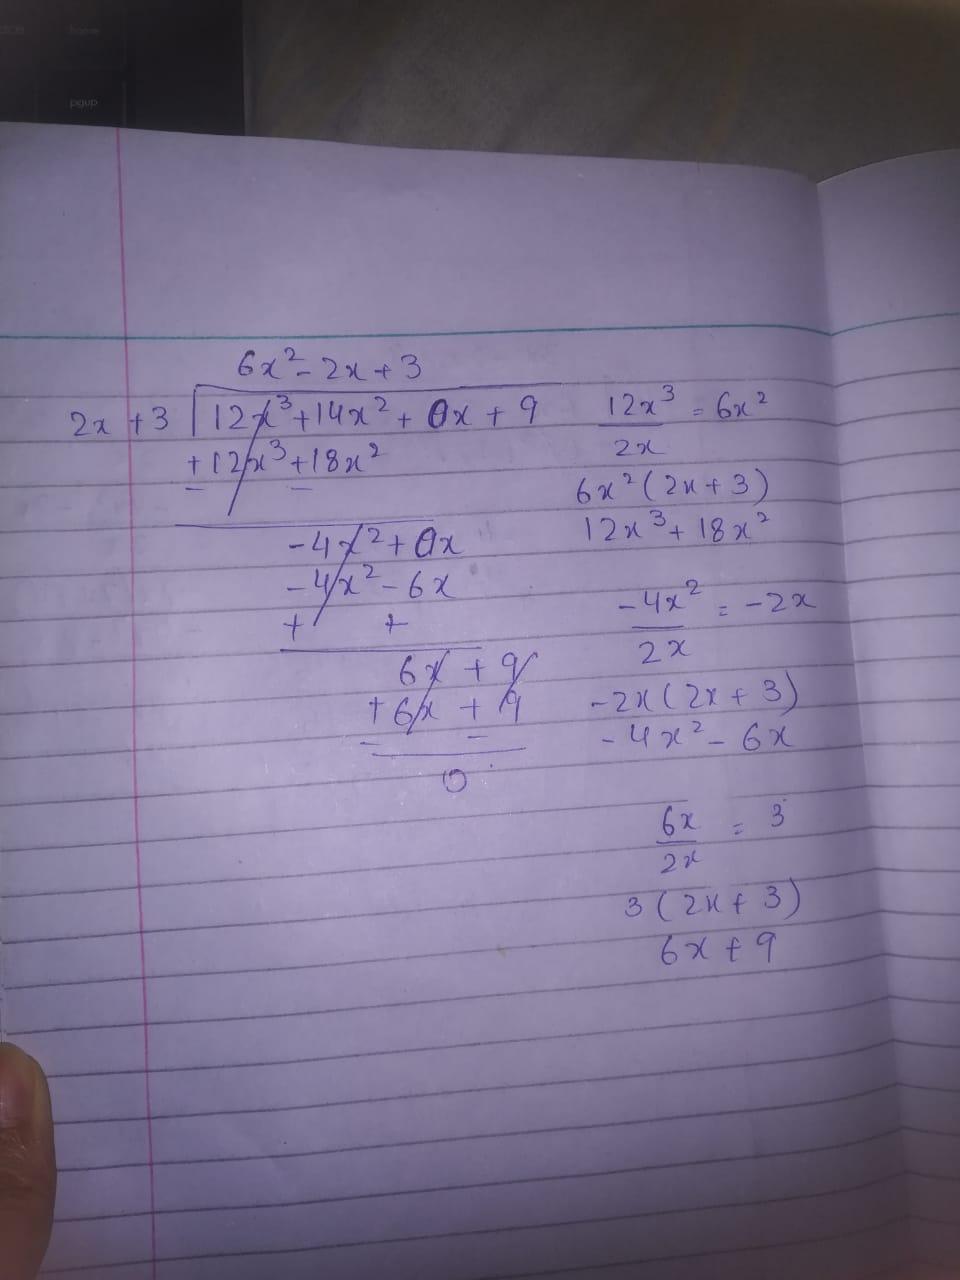 pgup
6x² - 2x + 3
2x + 3 | 12x³ + 14x² + 0x + 9
+ 12x³ + 18x²
- -
-4x² + 0x
-4x² - 6x
+ +
6x + 9
+ 6x + 9
- -
0
12x³ = 6x²
2x
6x² (2x + 3)
12x³ + 18x²
-4x² = -2x
2x
-2x (2x + 3)
-4x² - 6x
6x = 3
2x
3 (2x + 3)
6x + 9